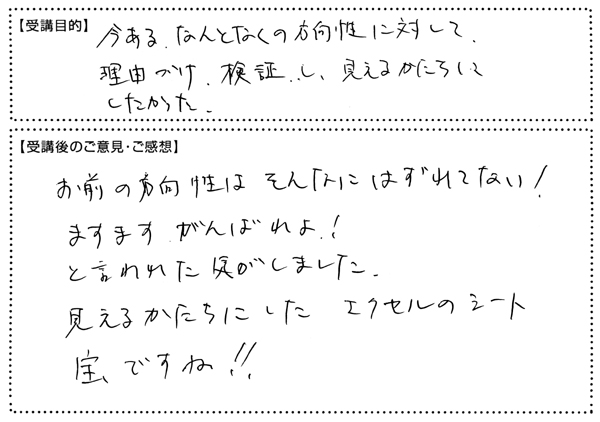 【受講目的】
今ある、なんとなくの方向性に対して、
理由づけ、検証、し、見えるかたちにして
したかった。
【受講後のご意見・ご感想】
お前の方向性は そんなにはずれてない!
ますます がんばれよ!
と言われた気がしました。
見えるかたちにした エクセルのシート
宝、ですね!!